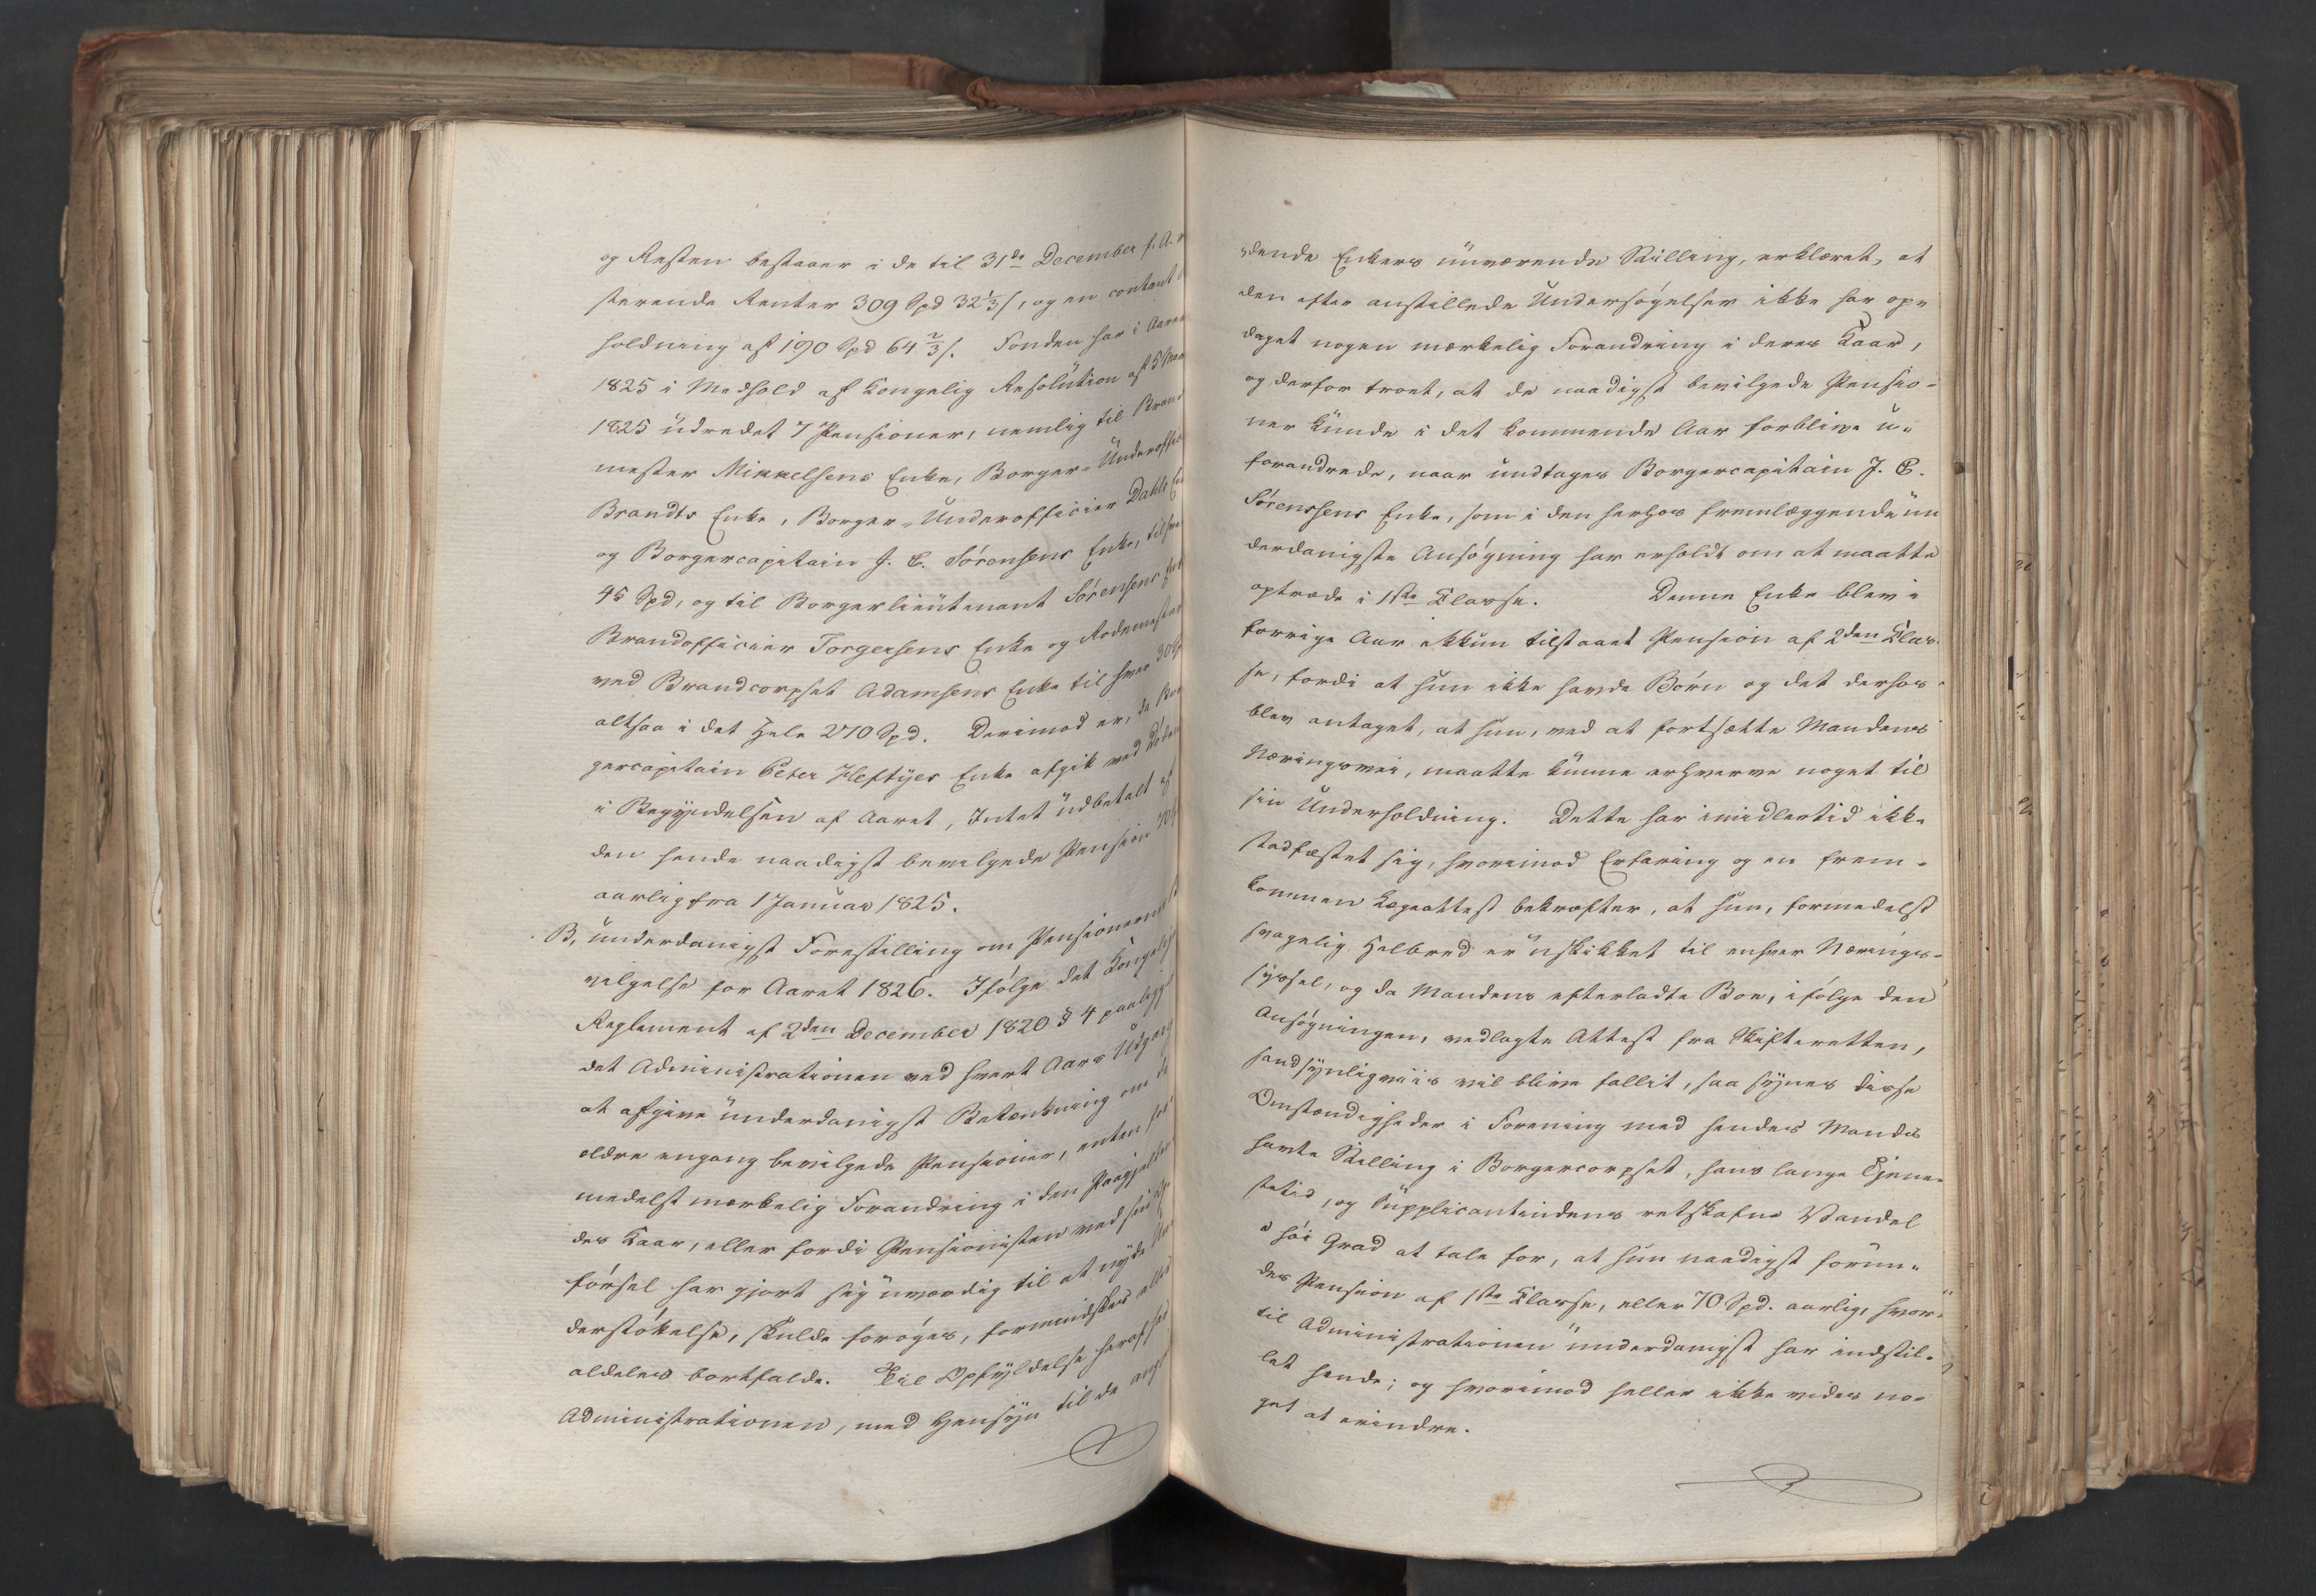 og Resten bestaaer i de til 31de December f. A.
sterende Renter 309 Spd 32 1/3 s, og en contant
holdning af 190 Spd 64 2/3 s. Fonden har i Aaret
1825 i Medhold af Kongelig Resolution af 5
1825 udredet 7 Pensioner, nemlig til Brand
mester Mikkelsens Enke, Borger-Underoffi
Brandts Enke, Borger-Underofficier Dahls
og Borgercapitain J. C. Sørensens Enke, til
45 Spd, og til Borgerlieutenant Sørensens
Brandofficier Torgersens Enke og Rodemester
ved Brandcorpset Adamsens Enke til hver 30
altsaa i det Hele 270 Spd. Derimod er, da Bor
gercapitain Peter Heftyes Enke afgik ved Døden
i Begyndelsen af Aaret, Intet udbetalt af
den hende naadigst bevilgede Pension 70
aarlig fra 1 Januar 1825.
B, underdanigst Forestilling om Pensionernes
vilgelse for Aaret 1826. Ifølge det Kongelige
Reglement af 2den December 1820 § 4 paaligger
det Administrationen ved hvert Aars Udgang
at afgive underdanigst Betænkning om de
ældre engang bevilgede Pensioner, enten for
medelst mærkelig Forandring i den Paagjælden
des Kaar, eller fordi Pensionisten ved sin Op
førsel har gjort sig uværdig til at nyde Un
derstøttelse, skulde forøges, formindskes eller
aldeles bortfalde. Til Opfyldelse heraf har
Administrationen, med Hensyn til de
dende Enkers nuværende Stilling, erklæret, at
den efter anstillede Undersøgelser ikke har op
daget nogen mærkelig Forandring i deres Kaar,
og derfor troet, at de naadigst bevilgede Pensio-
ner kunde i det kommende Aar forblive u-
forandrede, naar undtages Borgercapitain J. C.
Sørenssens Enke, som i den herhos fremlæggende un
derdanigste Ansøgning har erholdt om at maatte
optræde i 1ste Klasse. Denne Enke blev i
forrige Aar ikkun tilstaaet Pension af 2den Klas
se, fordi at hun ikke havde Børn og det derhos
blev antaget, at hun, ved at fortsætte Mandens
Næringsvei, maatte kunne erhverve noget til
sin Underholdning. Dette har imidlertid ikke
stadfæstet sig, hvorimod Erfaring og en frem-
kommen Lægeattest bekræfter, at hun, formedelst
svagelig Helbred er uskikket til enhver Nærings-
syssel, og da Mandens efterladte Boe, ifølge den
Ansøgningen, vedlagte Attest fra Skifteretten,
sandsynligviis vil blive fallit, saa synes disse
Omstændigheder i Forening med hendes Mands
havte Stilling i Borgercorpset, hans lange Tjene-
stetid, og Supplicantindens retskafne Vandel
i høi Grad at tale for, at hun naadigst forun-
des Pension af 1ste Klasse, eller 70 Spd. aarlig, hvor-
til Administrationen underdanigst har indstil-
let hende; og hvorimod heller ikke vides no-
get at erindre.